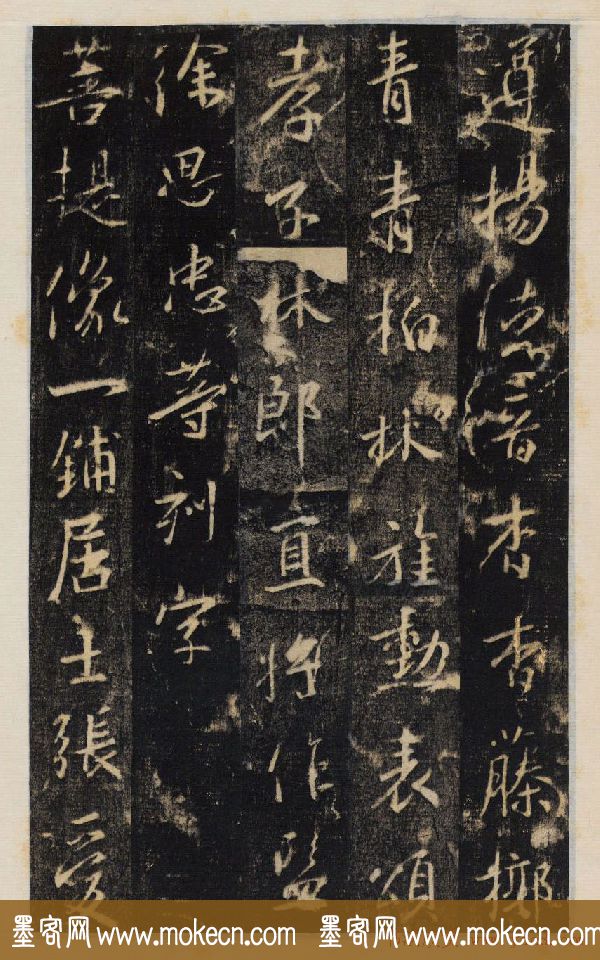 遵揚德音杳杳藤擲
青青柏林旌勳表頌
孝子林郎直將作監
徐思忠等刻字
菩提像一鋪居士張愛
墨客网 www.mokecn.com 墨客网 www.mokecn.com